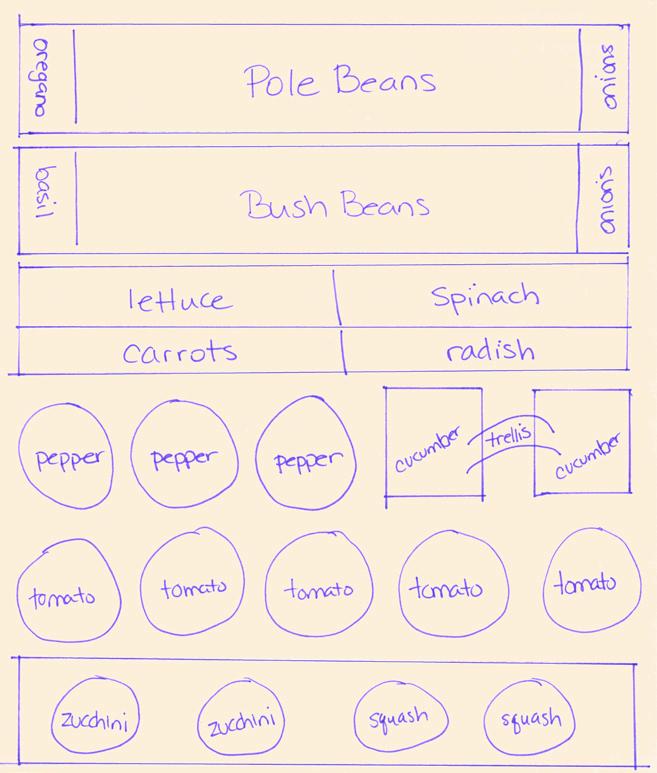 oregano Pole Beans onions
basil Bush Beans onions
lettuce spinach
carrots radish
pepper pepper pepper cucumber trellis cucumber
tomato tomato tomato tomato tomato
zucchini zucchini squash squash